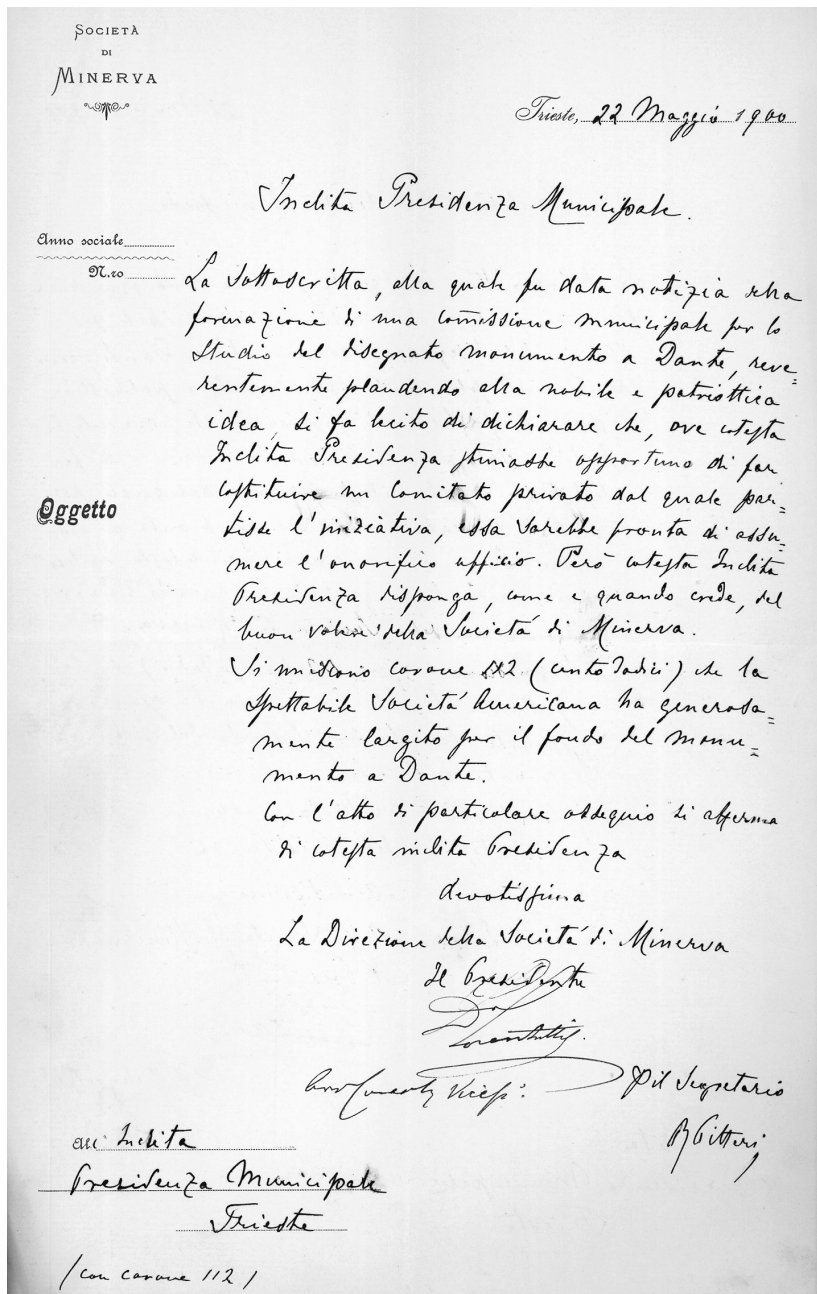 SOCIETÀ
DI
MINERVA
Trieste, 22 Maggio 1900
Inclita Presidenza Municipale.
Anno sociale
N.ro
La sottoscritta, alla quale fu data notizia della
formazione di una com̄issione municipale per lo
studio del disegnato monumento a Dante, reve=
rentemente plaudendo alla nobile e patriottica
idea, si fa lecito di dichiarare che, ove cotesta
Inclita Presidenza stimasse opportuno di far
costituire un Comitato privato dal quale par=
tisse l'iniziativa, essa sarebbe pronta di assu=
mere l'onorifico ufficio. Però cotesta Inclita
Presidenza disponga, come e quando crede, del
buon volere della Società di Minerva.
Oggetto
Si uniscono corone 112 (centododici) che la
Spettabile Società Americana ha generosa=
mente largito per il fondo del monu=
mento a Dante.
Con l'atto di particolare ossequio si afferma
di cotesta inclita Presidenza
devotissima
La Direzione della Società di Minerva
Il Presidente
Dr Lorenzutti
Vicep.
Pil Segretario
R Pitteri
All' Inclita
Presidenza Municipale
Trieste
/con corone 112/